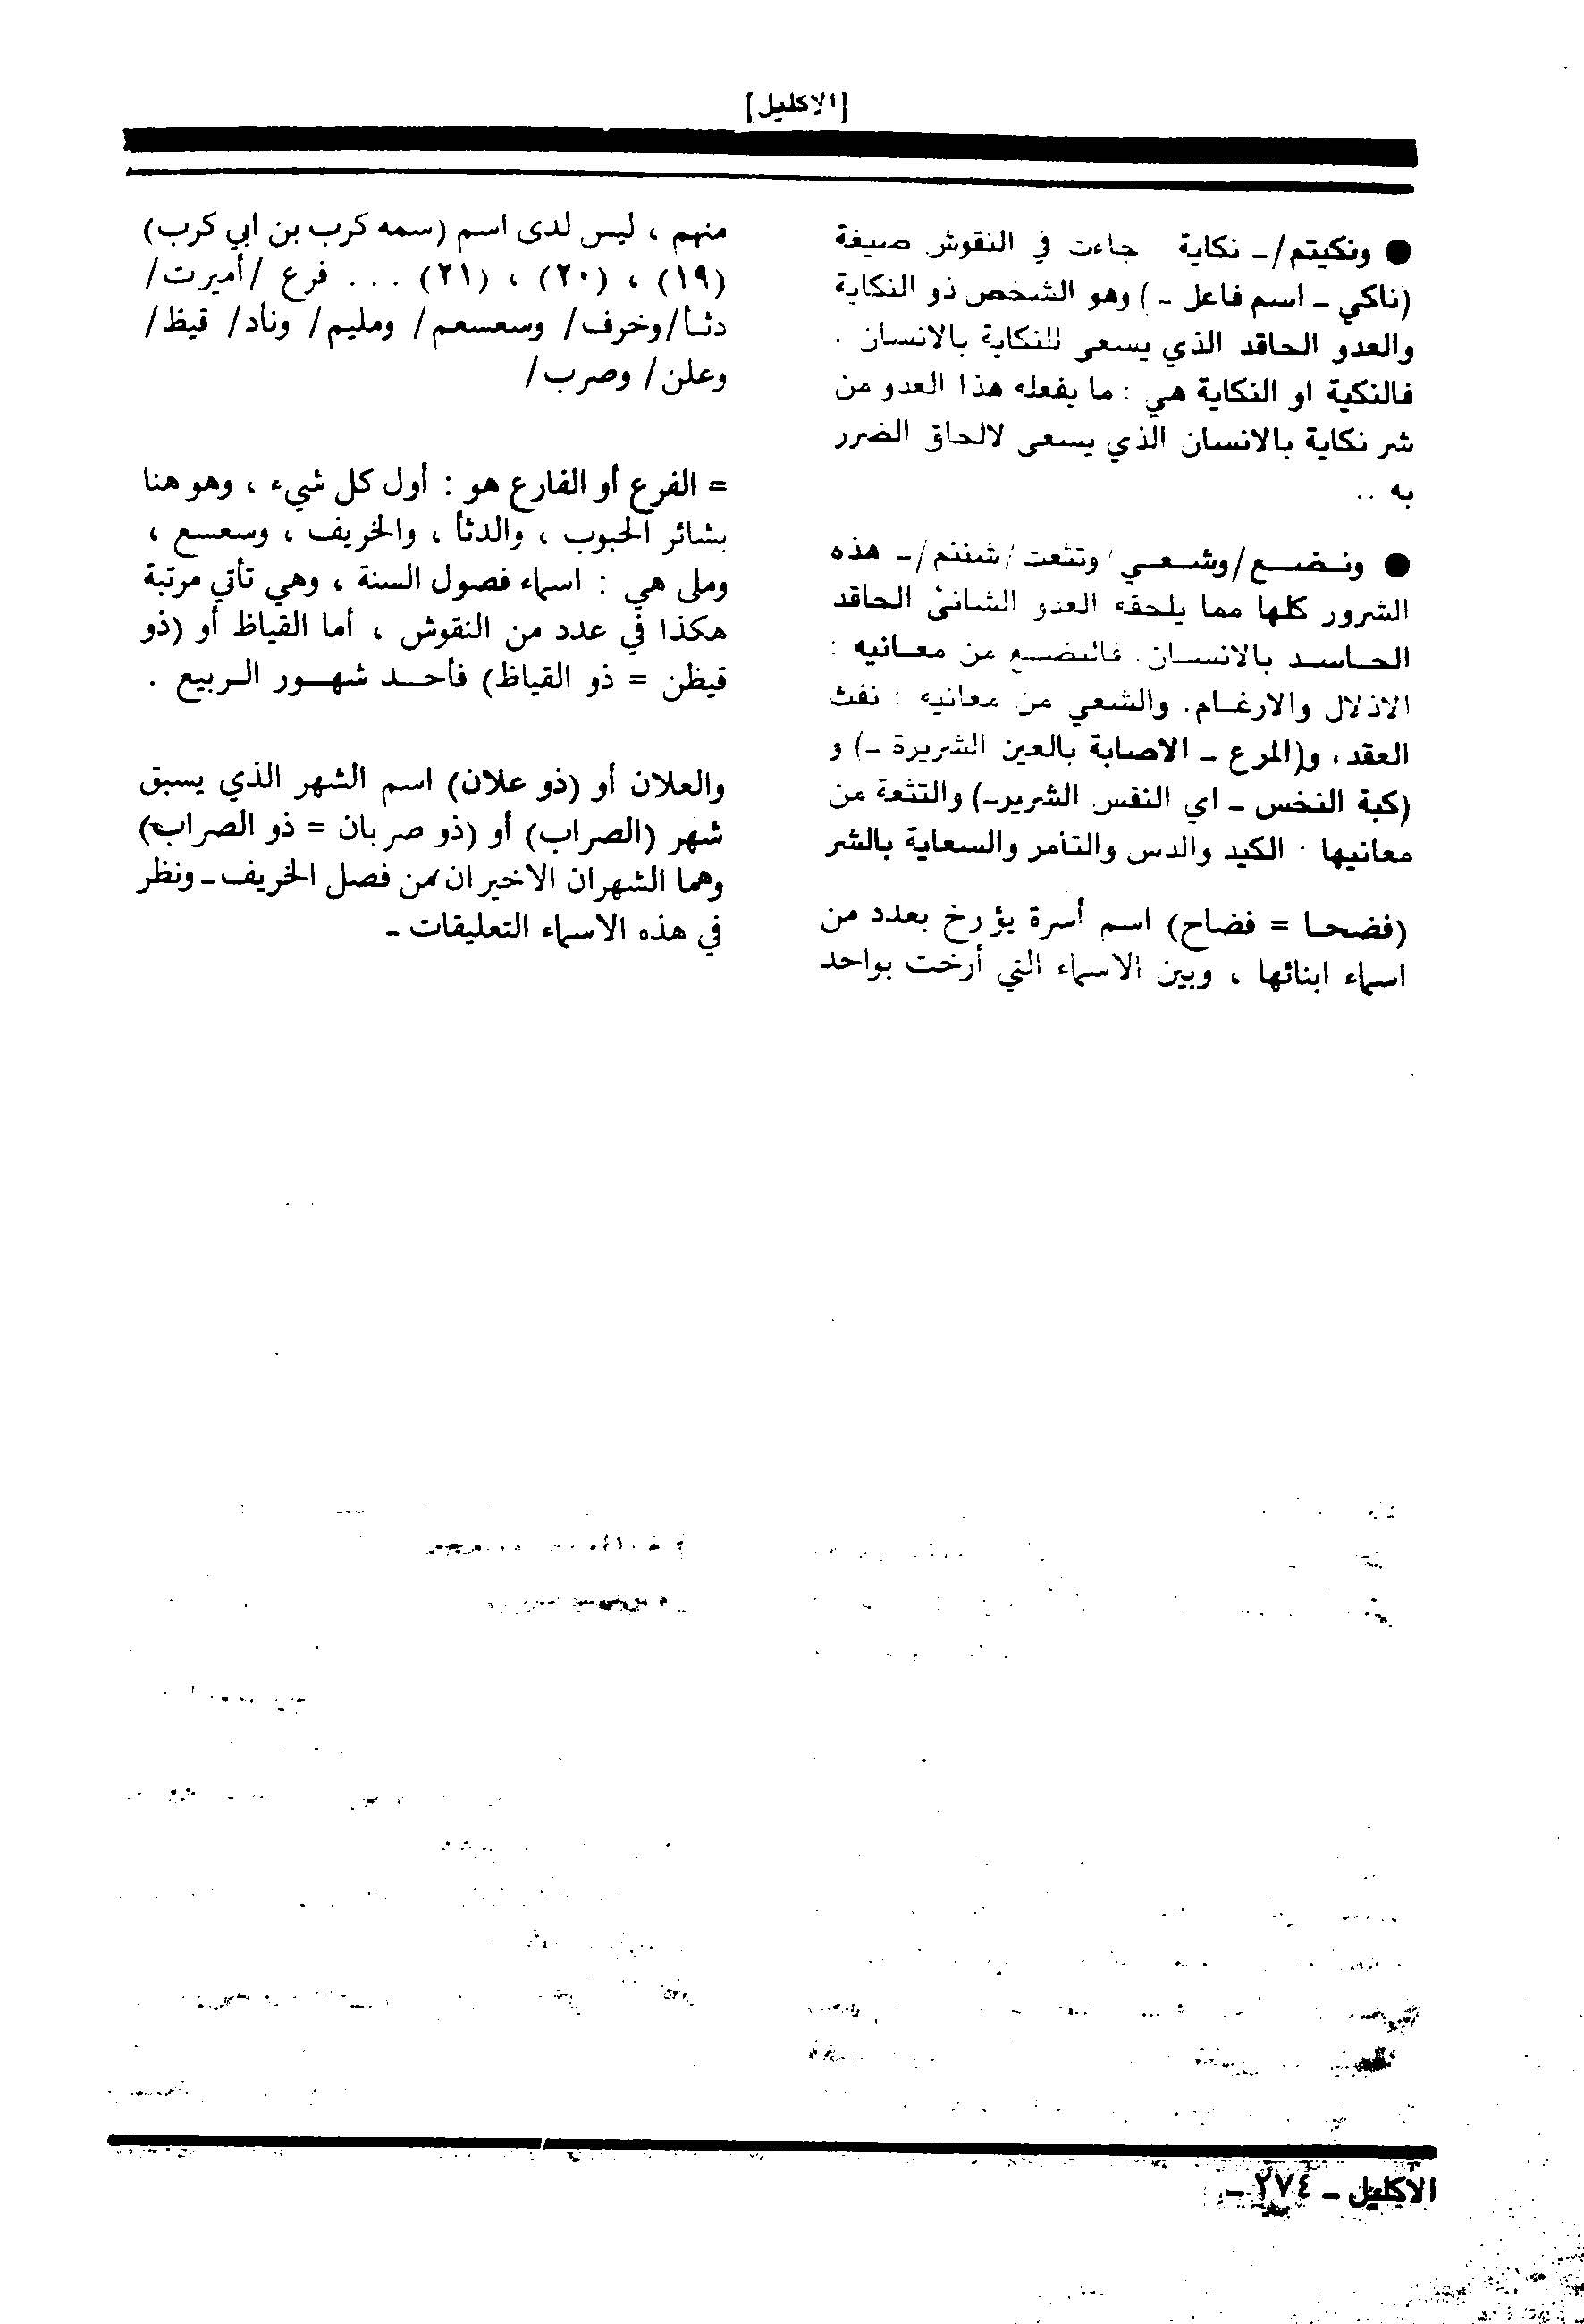 [الاكليل]
● ونكيتم/ـ نكاية جاءت في النقوش صيغة
(ناكي ـ اسم فاعل ـ) وهو الشخص ذو النكاية
والعدو الحاقد الذي يسعى للنكاية بالانسان .
فالنكية او النكاية هي : ما يفعله هذا العدو من
شر نكاية بالانسان الذي يسعى لالحاق الضرر
به ..
● ونـضـــع/وشـعـــي/وتثعت/شنئم/ـ هذه
الشرور كلها مما يلحقه العدو الشانئ الحاقد
الحـاســد بالانســان. فالنضــع من معـانيه :
الاذلال والارغـام. والشعي من معانيه : نفث
العقد، و(المرع ـ الاصابة بالعين الشريرة ـ) و
(كبة النخس ـ اي النقس الشرير ـ) والتثعة من
معانيها : الكيد والدس والتآمر والسعاية بالشر
(فضحـا = فضاح) اسم أسرة يؤرخ بعدد من
اسماء ابنائها ، وبين الاسماء التي أرخت بواحد
منهم ، ليس لدى اسم (سمه كرب بن ابي كرب)
(١٩) ، (٢٠) ، (٢١) ... فرع /أميرت/
دثـأ/وخرف/ وسعسعم/ ومليم/ ونأد/ قيظ/
وعلن/ وصرب/
= الفرع أو الفارع هو : أول كل شيء ، وهو هنا
بشائر الحبوب ، والدثأ ، والخريف ، وسعسع ،
وملى هي : اسماء فصول السنة ، وهي تأتي مرتبة
هكذا في عدد من النقوش ، أما القياظ أو (ذو
قيظن = ذو القياظ) فأحــد شهــور الـربيع .
والعلان أو (ذو علان) اسم الشهر الذي يسبق
شهر (الصراب) أو (ذو صربان = ذو الصراب)
وهما الشهران الاخيران من فصل الخريف ـ ونظر
في هذه الاسماء التعليقات ـ
الاكليل ـ ٢٧٤ ـ